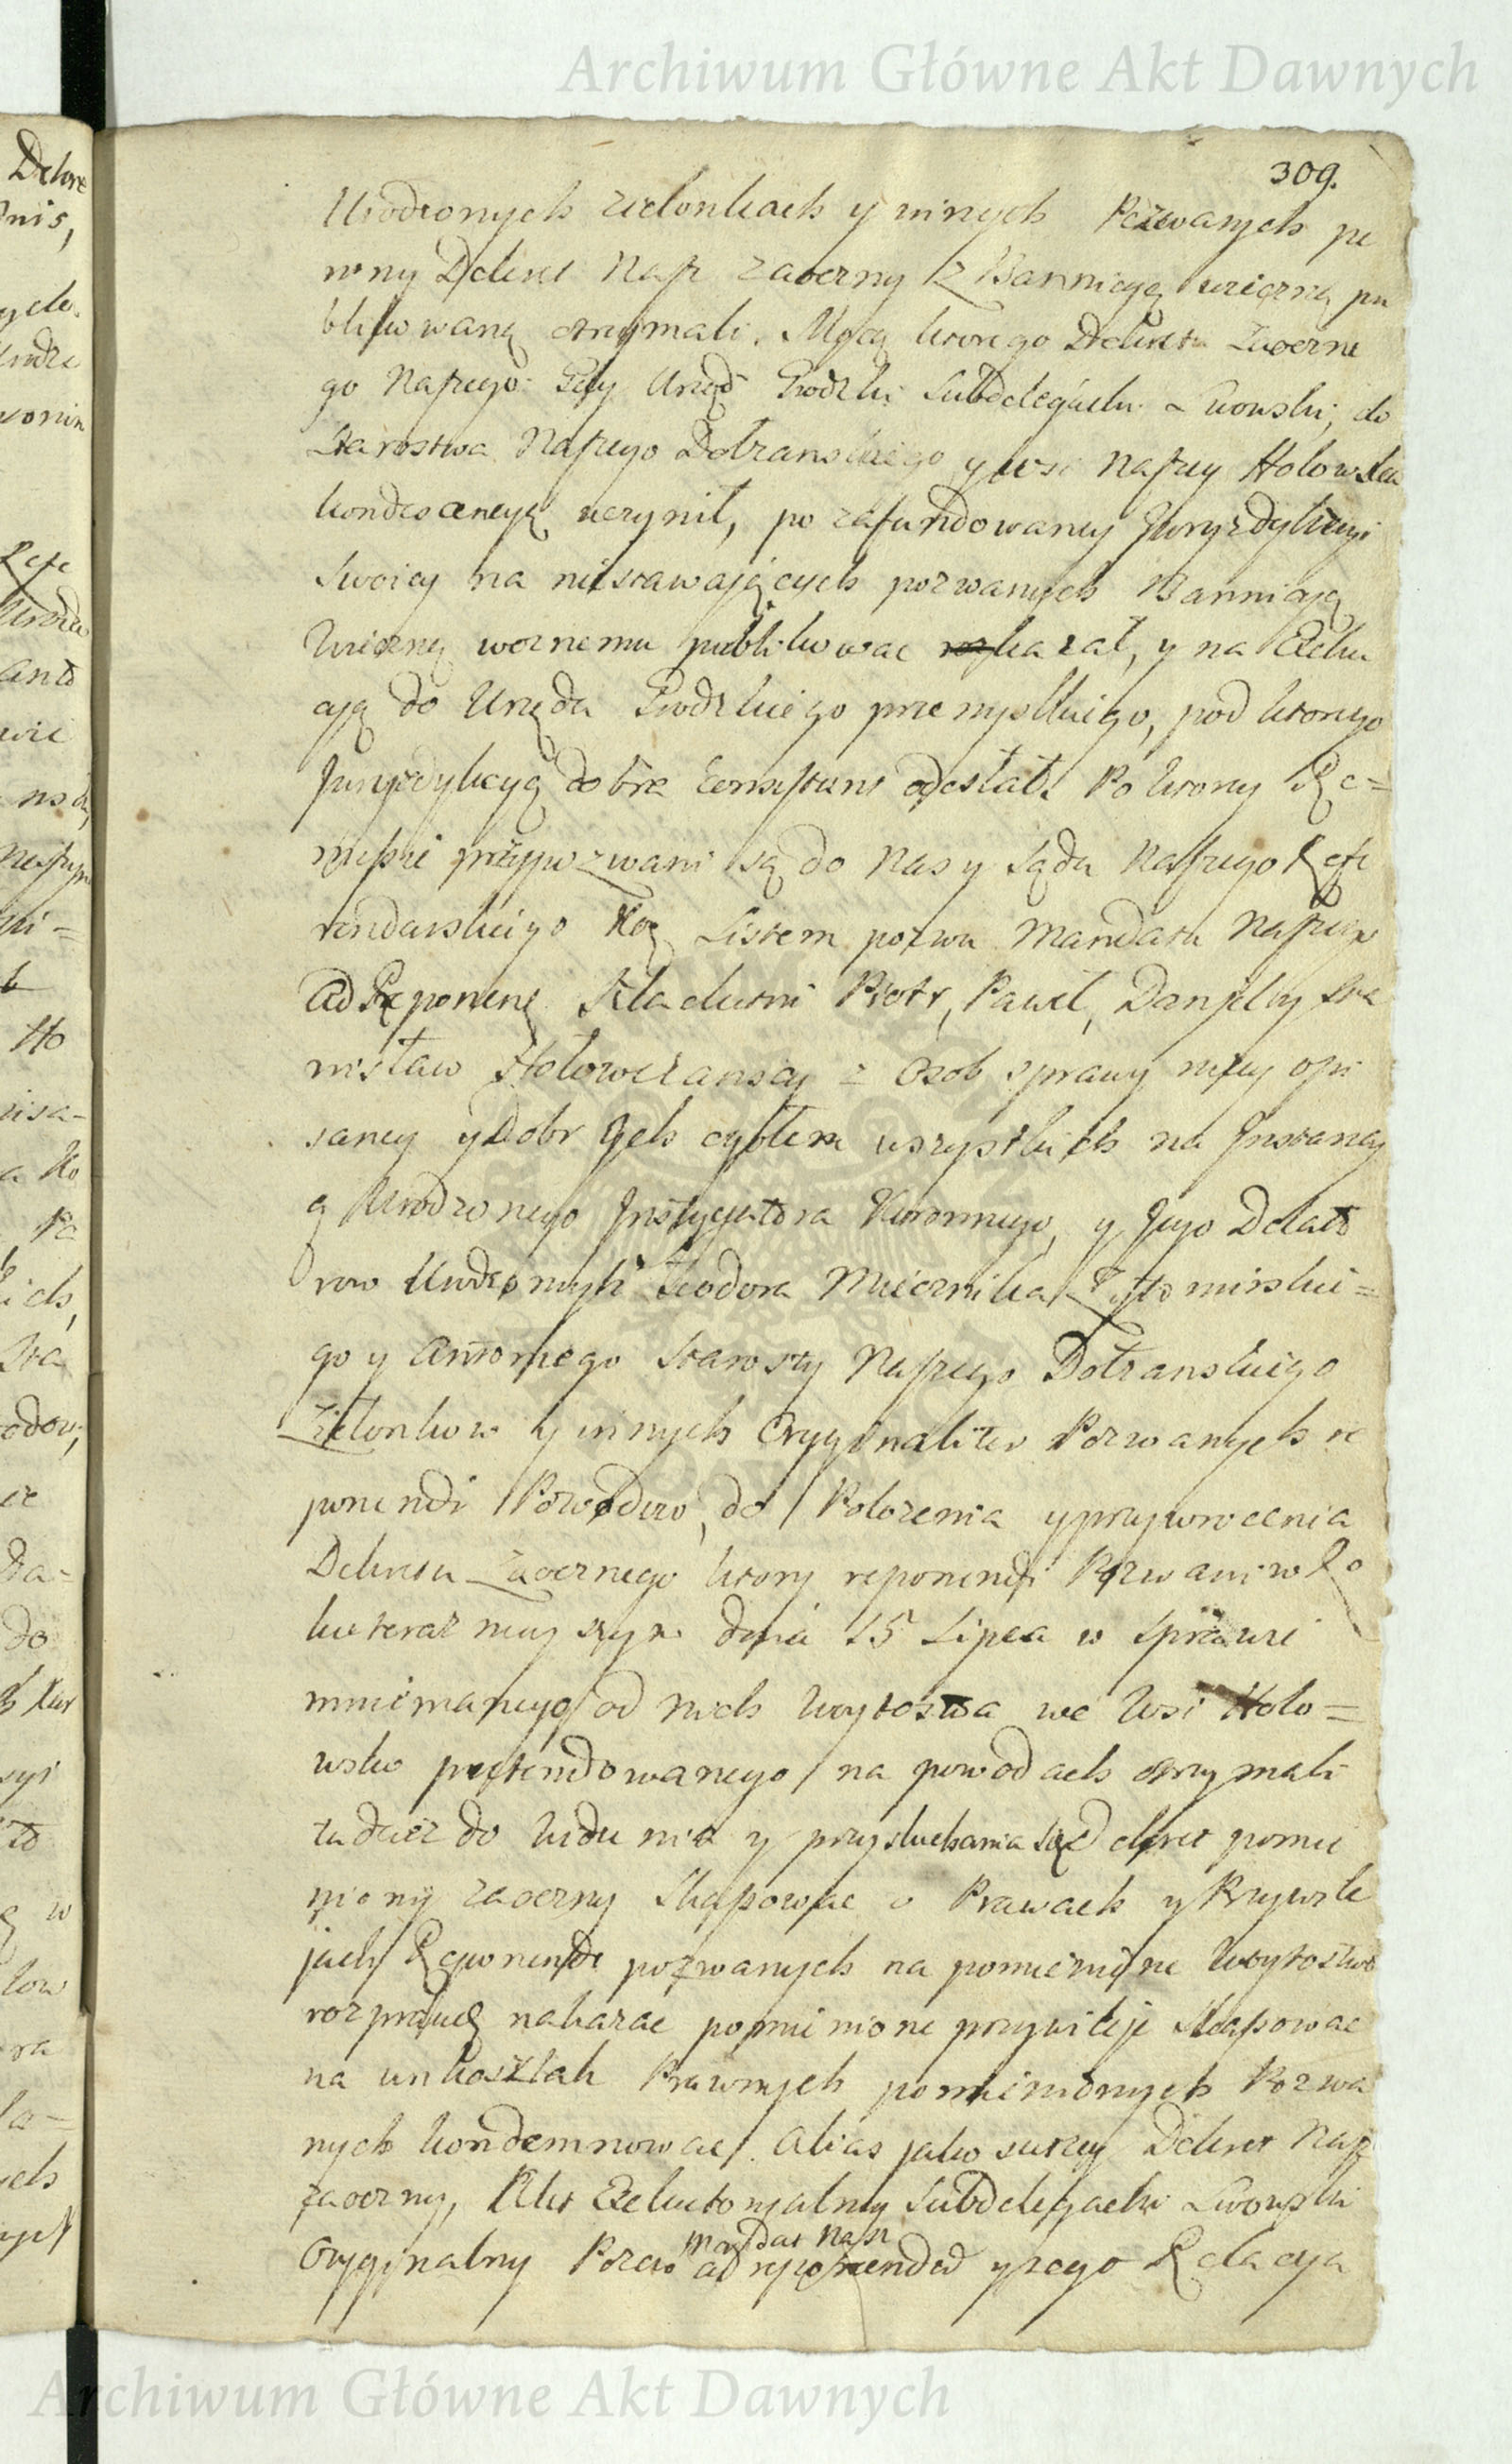 Archiwum Główne Akt Dawnych
309.
Urodzonych Zielonkach y innych Pozwanych pe
wny Dekret Nasz zaoczny z Bannicyą wieczną pu
blikowaną otrzymali. Mocą ktorego Dekretu Zaoczne
go Naszego Gdy Urząd Grodzki Subdelegacki Lwowski, do
Starostwa Naszego Dolzanskiego y wsi Naszey Holowska
kondescencyą uczynił, po zafundowaney Juryzdykcyi
Swoiey na niestawaiących pozwanych Bannicyą
Wieczną woznemu publikowac rozkazał, y na Exeku
cyą do Urzędu Grodzkiego przemyslkiego, pod ktorego
Juryzdykcyą dobra consistunt odesłał. Po ktorey Re=
missie przypozwani są do Nas y Sądu Naszego Refe
rendarskiego Kor Listem pozwu Mandatu Naszego
Ad Reponend Szlachetni Piotr, Paweł, Danjel y Sta
nisław Hołowczanscy z Osob sprawy niżey opi
saney y Dobr Jch cyblem wszystkich na Jnstancy
ą Urodzonego Jnstygatora Koronnego, y Jego Delato
row Urodzonych Teodora Miecznika Zytomirskie=
go y Antoniego Starosty Naszego Dolzanskiego
Zielonkow y innych Oryginaliter Pozwanych re
ponendi Powodow, do Polozenia y przywrocenia
Dekretu Zaocznego ktory reponendi Pozwani w Ro
ku teraznieyszym dnia 15 Lipca w Sprawie
mniemanego od nich Woytostwa we Wsi Holo=
wsko pretendowanego na powodach otrzymali
tudziez do widzenia y przysłuchania się dekret pomie
niony zaoczny skassowac o Prawach y Przywile
jach Reponendi pozwanych na pomienione Woytostwo
rozprawę nakazac pomienione przywileje skassowac
na unkosztah Prawnych pomienionych Pozwa
nych kondemnowac. Alias jako szerzey Dekret Nasz
zaoczny, Akt Exekutoryalny Subdelegacki Lwowski
Mandat Nasz
Oryginalny Pozew ad reponendum y jego Relacya
Archiwum Główne Akt Dawnych